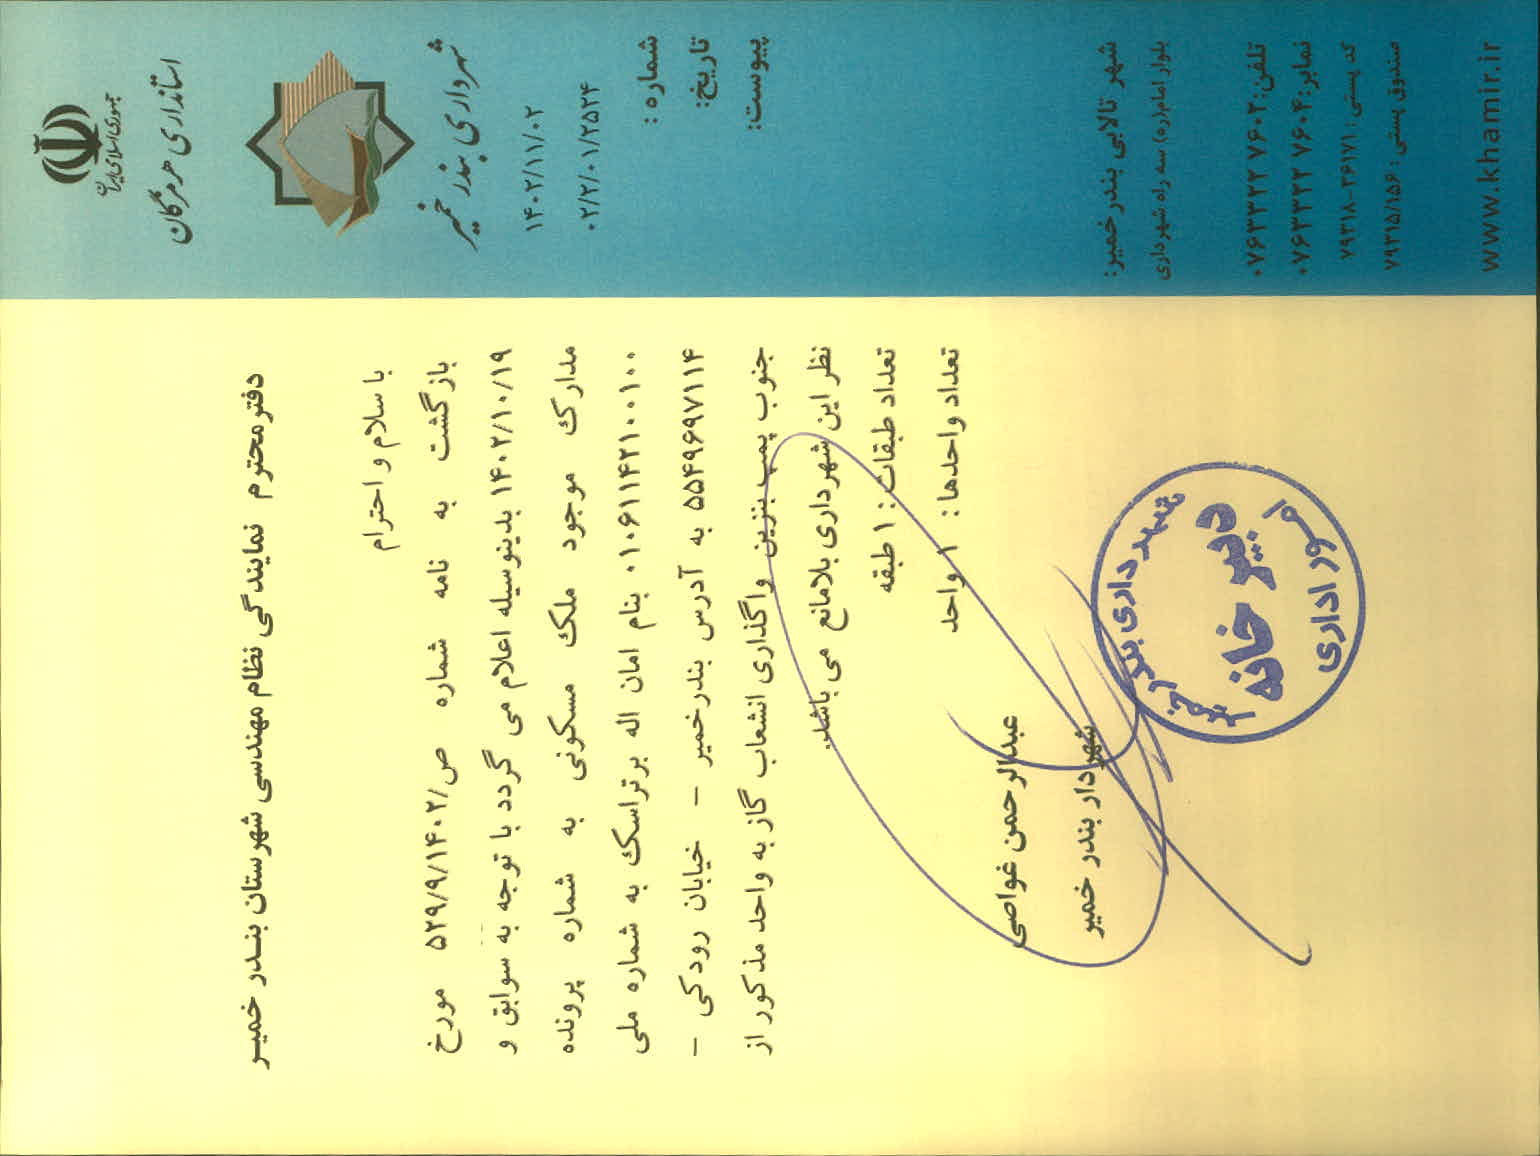 جمهوری اسلامی ایران
استانداری هرمزگان
شهرداری بندر خمیر
۱۴۰۲/۱۱/۰۲
۰۲/۲/۰۱/۲۵۲۴
شماره :
تاریخ:
پیوست:
دفتر محترم نمایندگی نظام مهندسی شهرستان بندر خمیر
با سلام و احترام
بازگشت به نامه شماره ص/۵۲۹/۹/۱۴۰۲ مورخ
۱۴۰۲/۱۰/۱۹ بدینوسیله اعلام می گردد با توجه به سوابق و
مدارک موجود ملک مسکونی به شماره پرونده
۰۱۰۶۱۱۴۲۱۰۰۱۰۰ بنام امان اله برتراسک به شماره ملی
۵۵۴۹۶۹۷۱۱۴ به آدرس بندرخمیر - خیابان رودکی -
جنوب پمپ بنزین واگذاری انشعاب گاز به واحد مذکور از
نظر این شهرداری بلامانع می باشد.
تعداد طبقات : ۱ طبقه
تعداد واحدها : ۱ واحد
عبدالرحمن غواصی
شهردار بندر خمیر
شهرداری بندر خمیر
دبیرخانه
امور اداری
شهر تالابی بندر خمیر:
بلوار امام(ره) سه راه شهرداری
تلفن: ۰۷۶۳۳۲۲۷۶۰۲
نمابر: ۰۷۶۳۳۲۲۷۶۰۴
کد پستی : ۳۶۱۷۱-۷۹۳۱۸
صندوق پستی : ۷۹۳۱۵/۱۵۶
www.khamir.ir